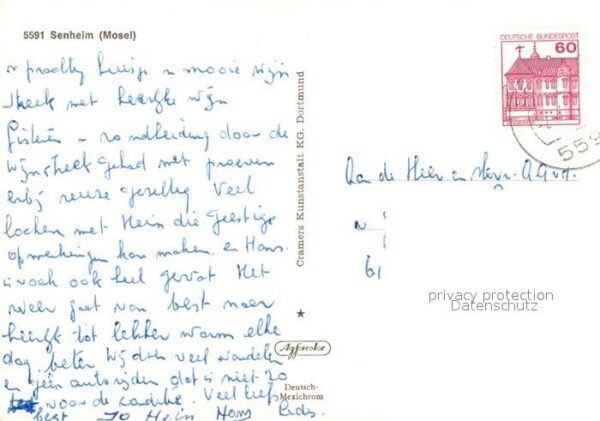 5591 Senheim (Mosel)
n prachtig huisje n mooie wijn
streek met heerlijke wijn
Gisteren n rondleiding door de
Wijnstreek gehad met proeven
erbij reuze gezellig Veel
lachen met Hein die geestige
opmerkingen kan maken en Hans
is vaak ook heel gevat Het
weer gaat van best naar
heerlijk tot lekker warm elke
dag beter Wij doen veel wandelen
en géén autorijden dat is niet zo
voor de conditie. Veel liefs
best Jo Hein Hans
Cramers Kunstanstalt KG, Dortmund
Agfacolor
Deutsch-
Mexichrom
DEUTSCHE BUNDESPOST
60
559
Aan de Heer en Mevr.
privacy protection
Datenschutz